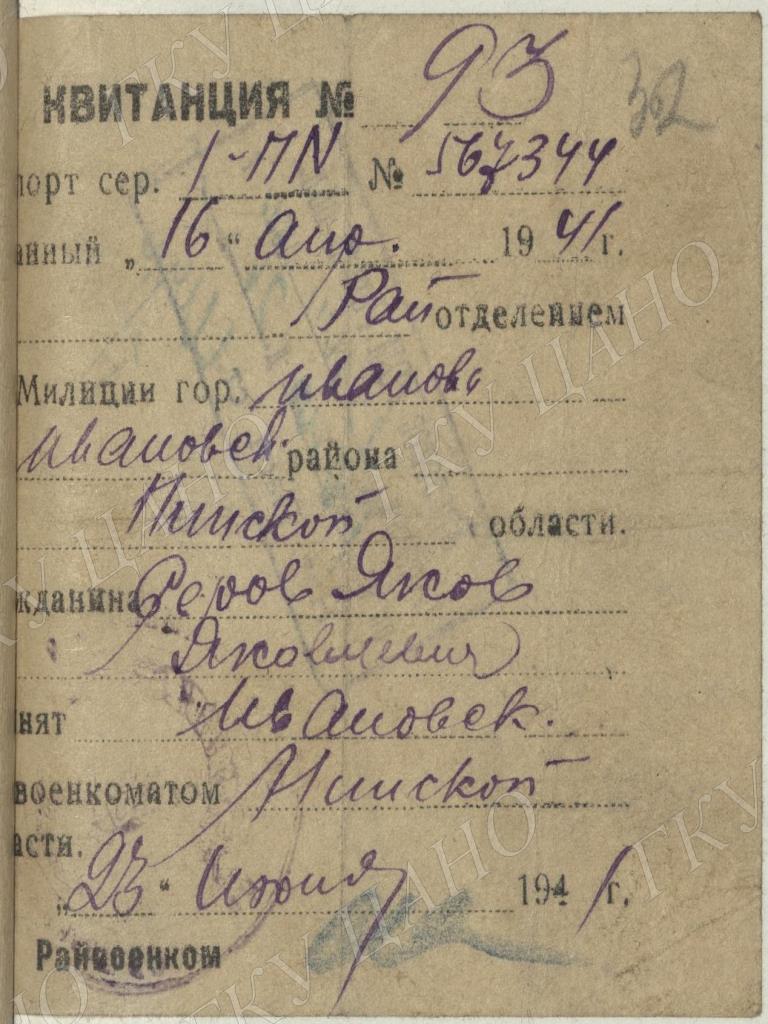 КВИТАНЦИЯ № 93
32
порт сер. 1-ПN № 567344
анный „16" Апр. 1941 г.
Рай отделением
Милиции гор. Иваново
Ивановск. района
Пинской области.
жданина Яков
Яковлевич
нят Ивановск.
военкоматом Пинской
асти.
„23" Июня 1941 г.
Райвоенком